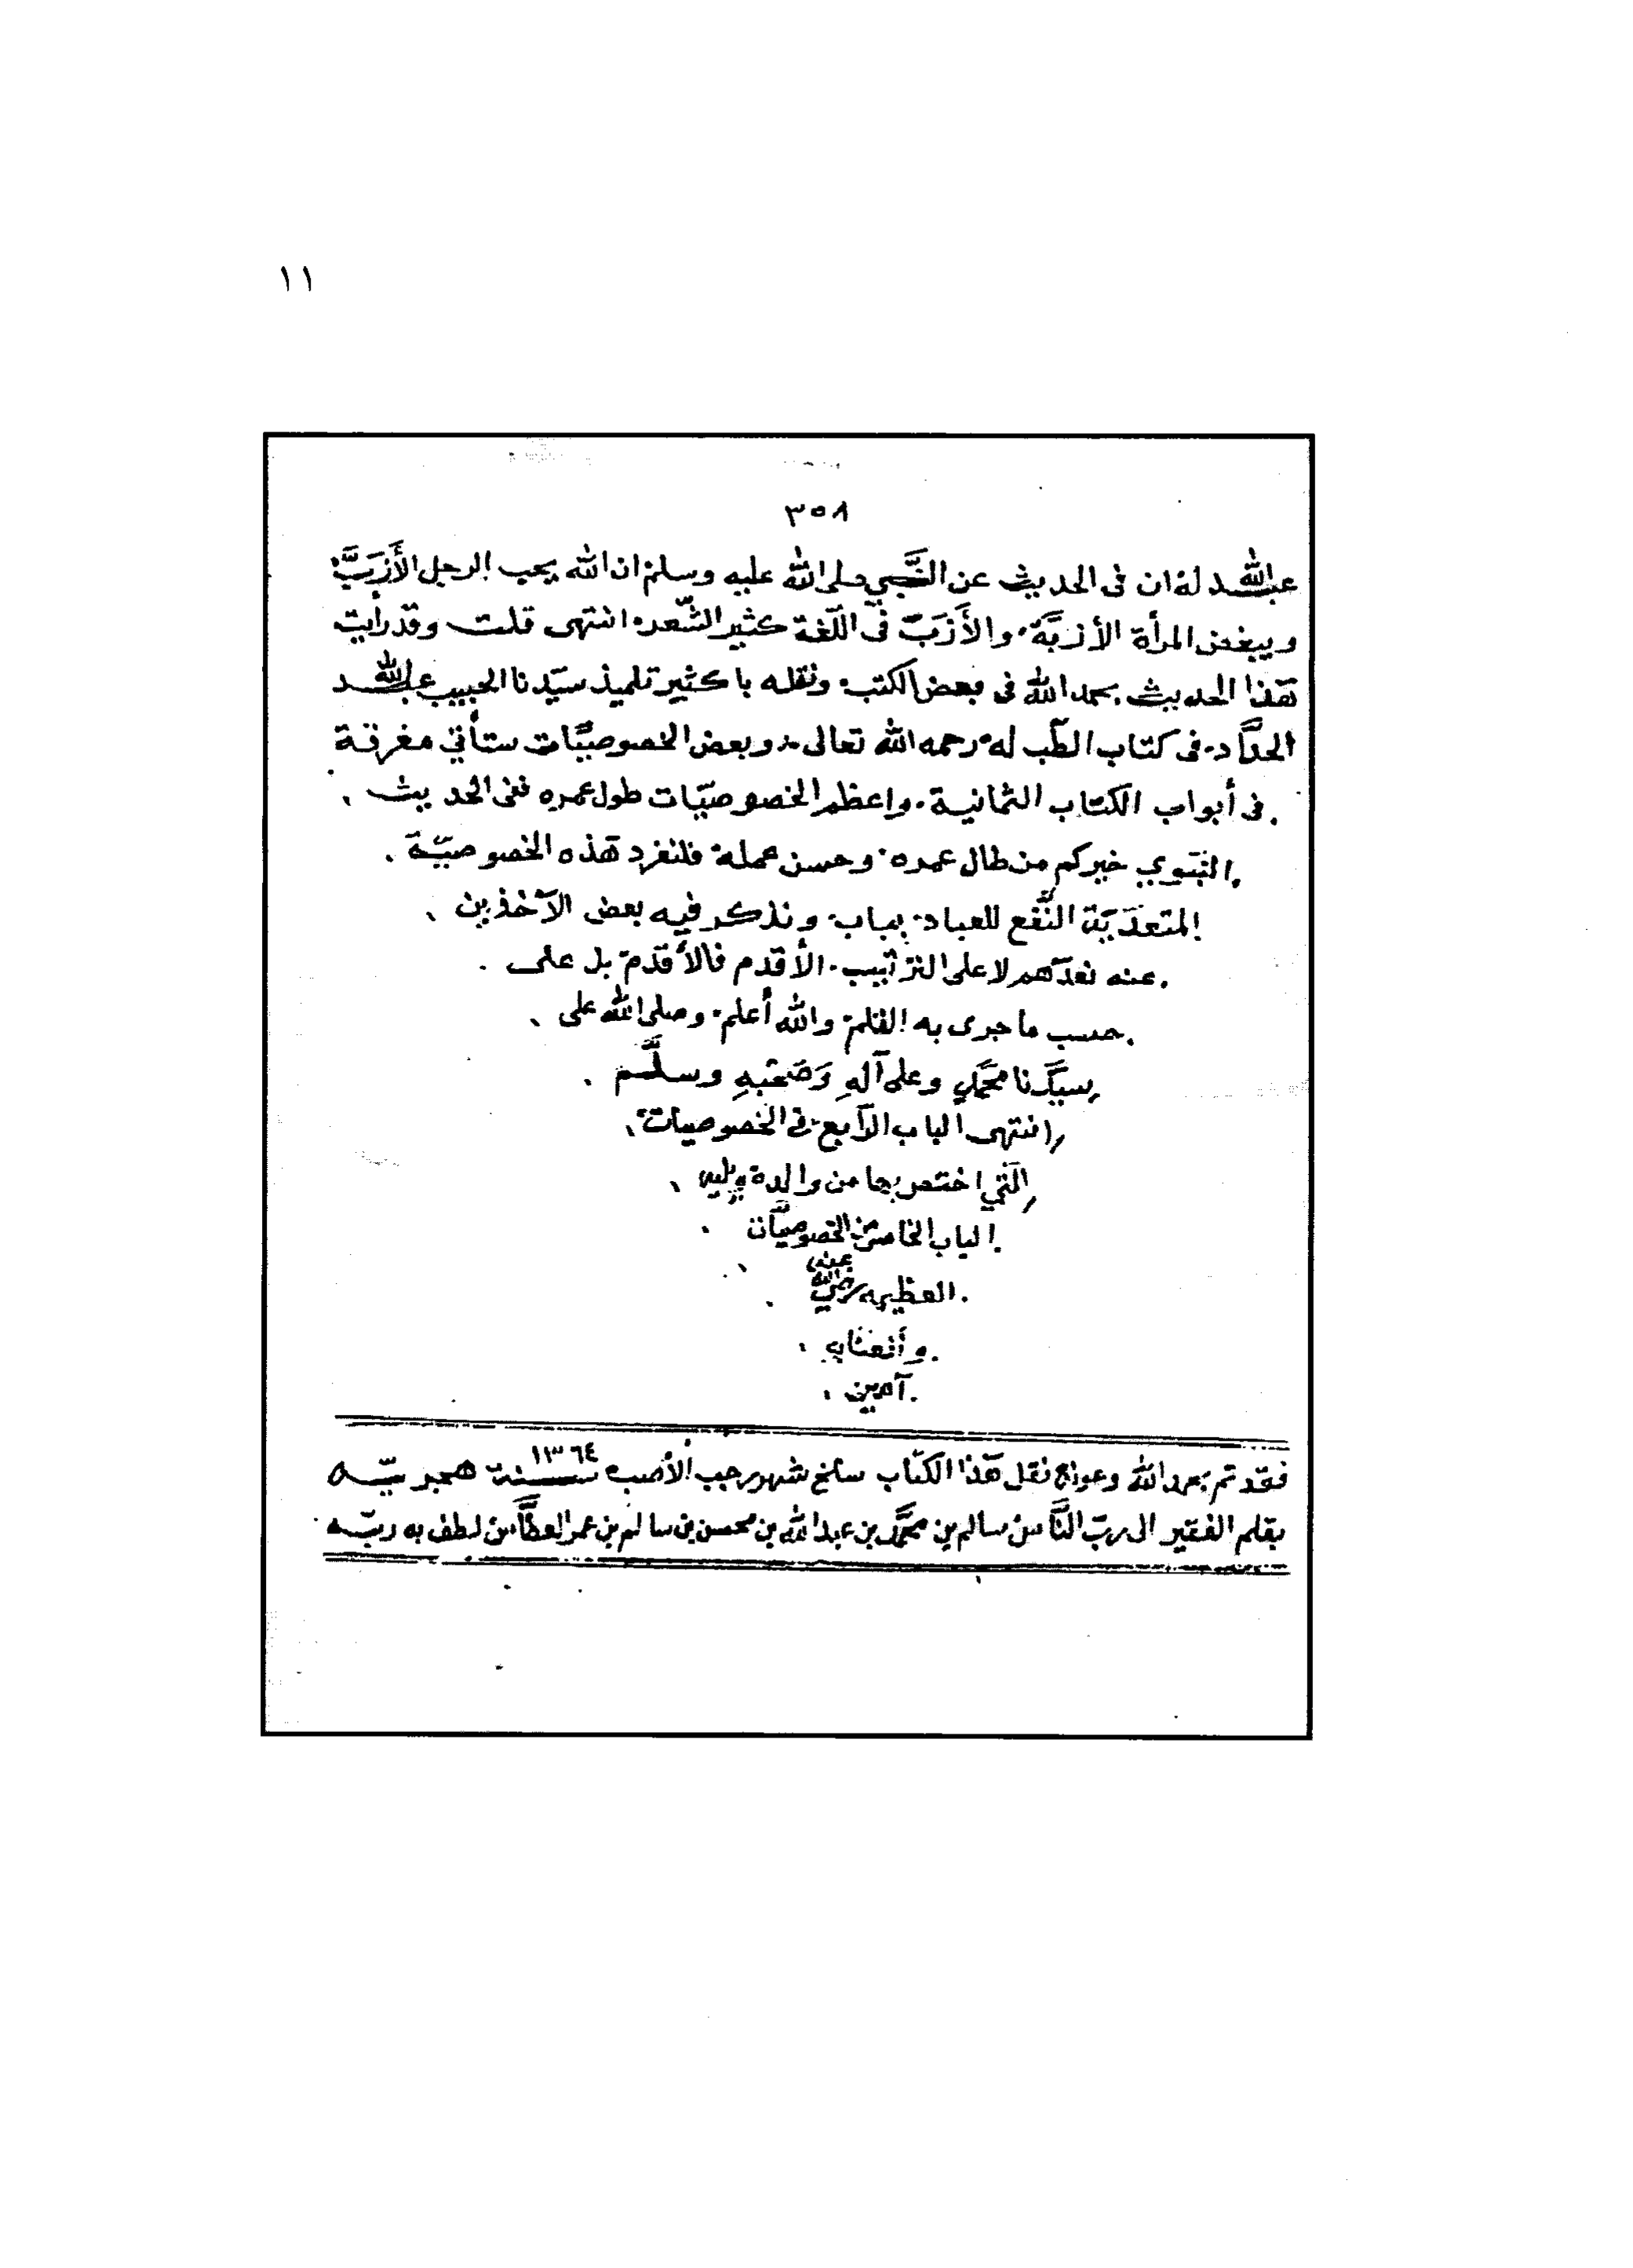 ١١
٣٥٨
عبدالله له ان فى الحديث عن النَّبي صلى الله عليه وسلم ان الله يحب الرجل الأَزَبَّ
ويبغض المرأة الأزبَّة. والأَزَبّ فى اللّغة كثير الشّعر. انتهى قلت وقد رأيت
هذا الحديث بحمد الله فى بعض الكتب. ونقله باكثير تلميذ سيّدنا الحبيب عبدالله
الحدَّاد. فى كتاب الطّب له رحمه الله تعالى. وبعض الخصوصيَّات ستأتي مفرقة
فى أبواب الكتاب الثمانية. واعظم الخصوصيّات طول عمره ففى الحديث
النّبوي خيركم من طال عمره. وحسن عمله. فلنفرد هذه الخصوصيّة
المتعدّيّة النَّفع للعباد. بباب. ونذكر فيه بعض الآخذين
عنه نعدّهم لا على الترتيب. الأقدم فالأقدم بل على
حسب ما جرى به القلم. والله أعلم. وصلى الله على
سيّدنا محمَّدٍ وعلى آلهِ وَصَحْبِهِ وسلَّم
انتهى الباب الرّابع فى الخصوصيات
الّتي اختص بها من والده ويليه
الباب الخامس من الخصوصيَّات
العظيمه رضي الله عنه
وأنعثابه
آمين
فقد تم بحمد الله وعونه نقل هذا الكتاب سلخ شهر رجب الأصب سنة ١٣٦٤ هجريّه
بقلم الفقير الى ربّ النَّاس سالم بن محمَّد بن عبد الله بن محسن بن سالم بن عمر العطَّاس لطف به ربّه